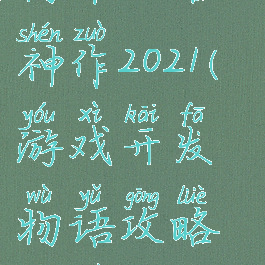 shén zuò
神作2021(
yóu xì kāi fā
游戏开发
wù yǔ gōng lüè
物语攻略